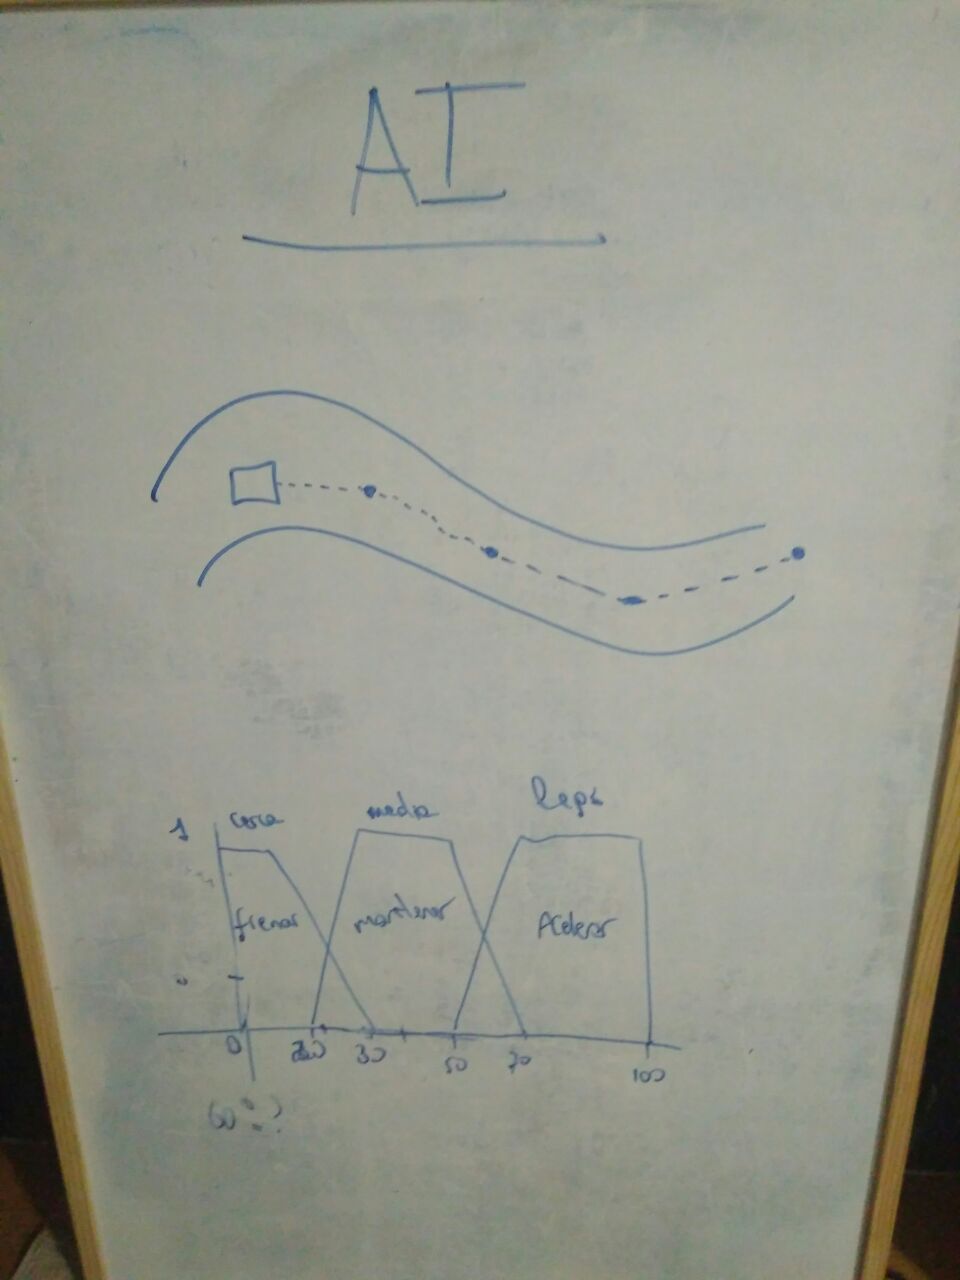 AI
1 cerca media Lejos
frenar mantener Acelerar
0
0 20 30 50 70 100